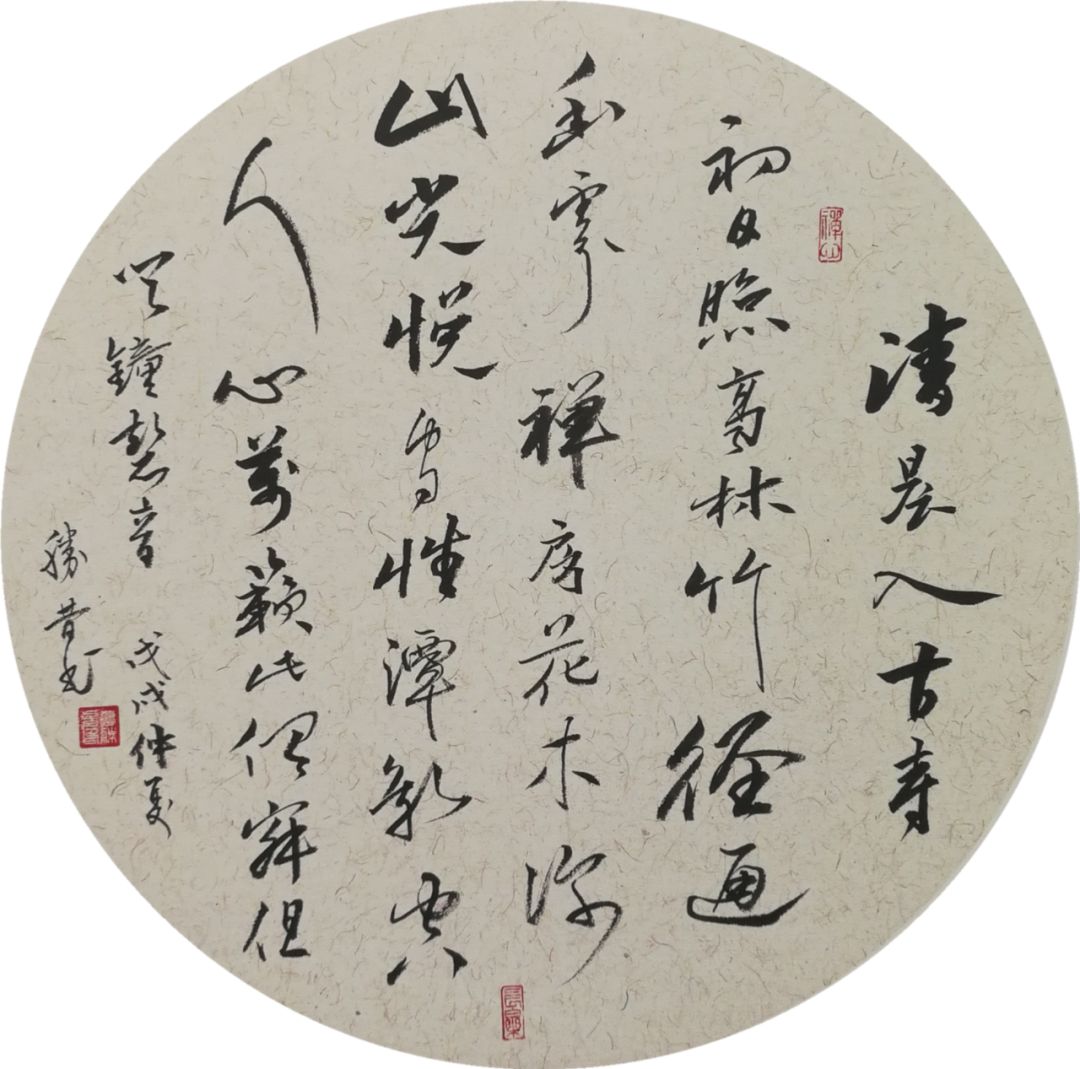 清晨入古寺
初日照高林竹徑通
幽處禅房花木深
山光悦鸟性潭影空
人心萬籟此俱寂但
闻鐘磬音 戊戌仲夏
勝昔书